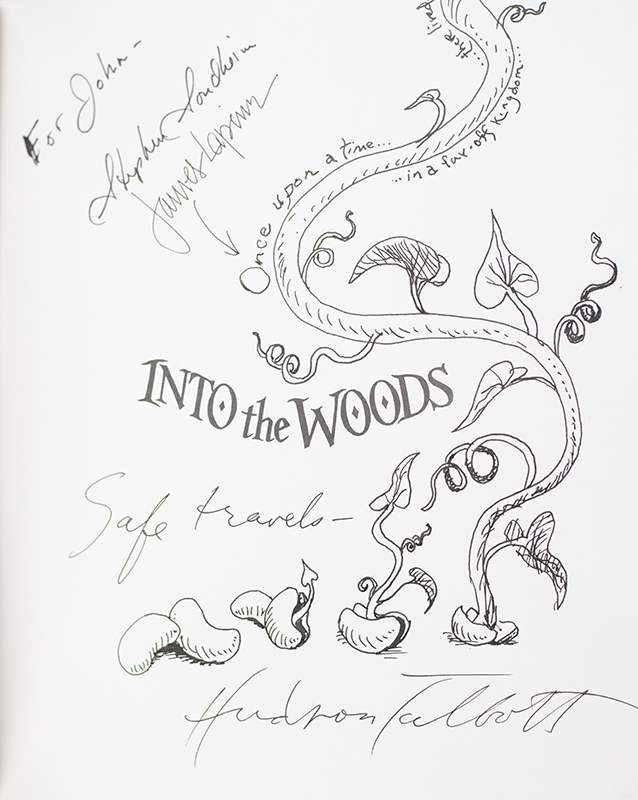 For John-
Stephen Sondheim
James Lapine
Once upon a time...
...in a far-off kingdom...
INTO the WOODS
Safe travels-
Hudson Talbott